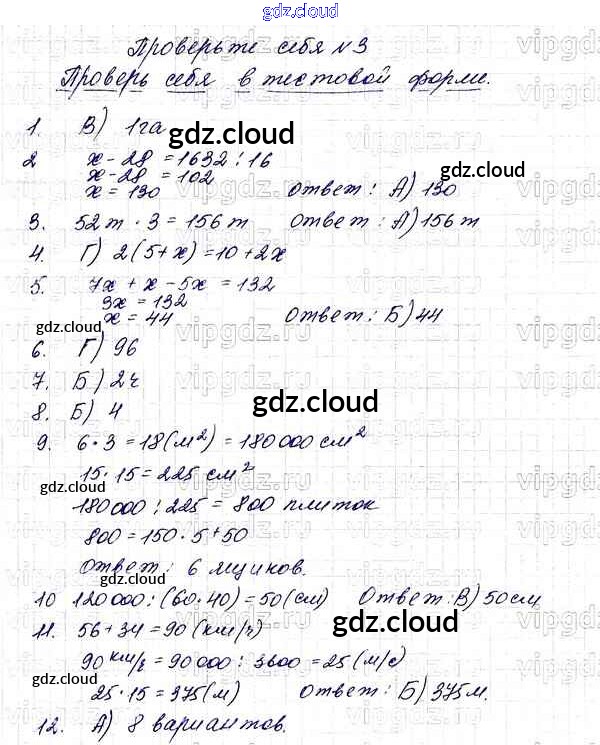 gdz.cloud
Проверьте себя №3
Проверь себя в тестовой форме.
1. В) 1га
gdz.cloud
2 x - 28 = 1632 : 16
x - 28 = 102
x = 130 Ответ: А) 130
gdz.cloud
3. 52т · 3 = 156 т Ответ: А) 156 т
4. Г) 2(5+x) = 10 + 2x
5. 7x + x - 5x = 132
3x = 132
x = 44 Ответ: Б) 44
gdz.cloud
gdz.cloud
6. Г) 96
7. Б) 2ч
8. Б) 4
gdz.cloud
9. 6 · 3 = 18 (м²) = 180 000 см²
15 · 15 = 225 см²
gdz.cloud
gdz.cloud
180 000 : 225 = 800 плиток
800 = 150 · 5 + 50
Ответ: 6 ящиков.
gdz.cloud
10 120 000 : (60 · 40) = 50 (см) Ответ: В) 50 см
11. 56 + 34 = 90 (км/ч)
gdz.cloud
90 км/ч = 90 000 : 3600 = 25 (м/с)
gdz.cloud
25 · 15 = 375 (м) Ответ: Б) 375 м.
12. А) 8 вариантов.
gdz.cloud
vipgdz.ru